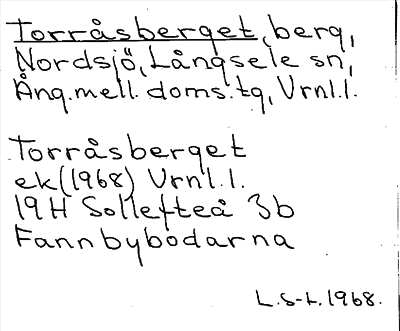 Torråsberget, berg,
Nordsjö, Långsele sn,
Ång.mell. doms.tg, Vrnl.l.
Torråsberget
ek (1968) Vrnl.l.
19H Sollefteå 3b
Fannbybodarna
L.S-t. 1968.